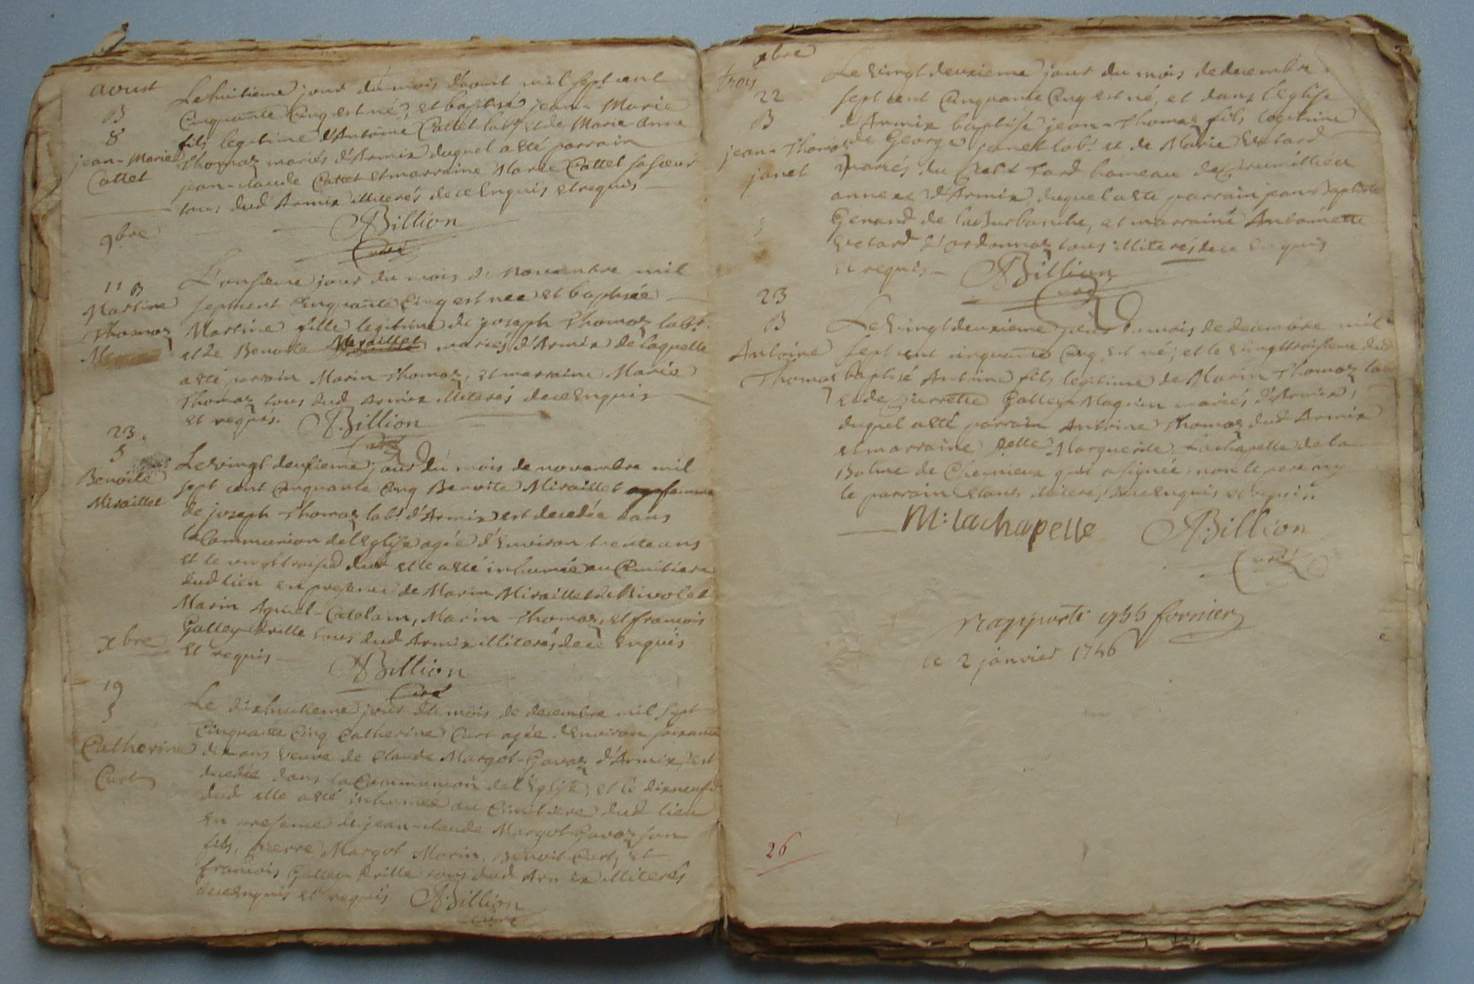 aoust
B
8
jean-Marie
Cattet
Le huitieme jour du mois d'aout mil sept cent
cinquante Cinq est né, et baptisé jean-Marie
fils legitime d'Antoine Cattet labr et de Marie Anne
Thomaz mariés d'Armix duquel a eté parrain
jean-claude Cattet et marraine Marie Cattet sa soeur
tous dud Armix illiterés de ce Enquis et requis
Billion
Curé
9bre
11 B
Martine
Thomaz
L'onsieme jour du mois de Novembre mil
sept cent Cinquante Cinq est née et baptisée
Martine fille legitime de joseph Thomaz labr
et de Benoite Miraillet mariés d'Armix de laquelle
a eté parrain Marin Thomaz, et marraine Marie
Thomaz tous dud Armix illiterés de ce Enquis
et requis. Billion
Curé
23
S
Benoite
Miraillet
Le vingt deusieme jour du mois de novembre mil
sept cent cinquante cinq Benoite Miraillet femme
de joseph Thomaz labr d'Armix est decedée dans
la Communion de l'Eglise agée d'Environ trente ans
et le vingt troisie dud elle a eté inhumée au Cimitiere
dud lien en presence de Marin Miraillet de Rivolet
Marin Aguet-Catelam, Marin Thomaz, et francois
Galley tous dud Armix illiterés de ce Enquis
et requis
Billion
Curé
xbre
19
S
Catherine
Curt
Le dixhuitieme jour du mois de decembre mil sept
Cinquante Cinq Catherine Curt agée d'Environ soixante
dix ans veuve de Claude Margot-Gavaz d'Armix, est
decedée dans la Communion de l'Eglise, et le dixneufe
dud elle a eté inhumée au Cimitiere dud lieu
En presence de jean-claude Margot-Gavaz son
fils, pierre Margot Marin, Benoit Curt, et
francois Galley tous dud Armix illiterés
de ce Enquis et requis Billion
curé
xbre
22
B
jean-Thomaz
janet
Le vingt deuxieme jour du mois de decembre
sept cent Cinquante Cinq est né, et dans l'Eglise
d'Armix baptisé jean-Thomaz fils legitime
de George janet labr et de Marie
mariés du hameau de
annexe d'Armix duquel a eté parrain jean Baptiste
Genand de la Burbanche, et marraine Antoinette
tous illiterés de ce Enquis
et requis Billion
curé
23
B
Antoine
Thomaz
Le vingt deuxieme jour du mois de decembre mil
sept cent cinquante cinq est né, et le vingt troisieme dud
baptisé Antoine fils legitime de Marin Thomaz lab
et de pierrette Galley-Magnin mariés d'Armix,
duquel a eté parrain Antoine Thomaz dud Armix
et marraine Marguerite Lachapelle de la
Balme de qui a signée non le pere ny
le parrain illiterés de ce Enquis et requis
M: Lachapelle Billion
Curé
Rapporté 1755
le 2 janvier 1756
26